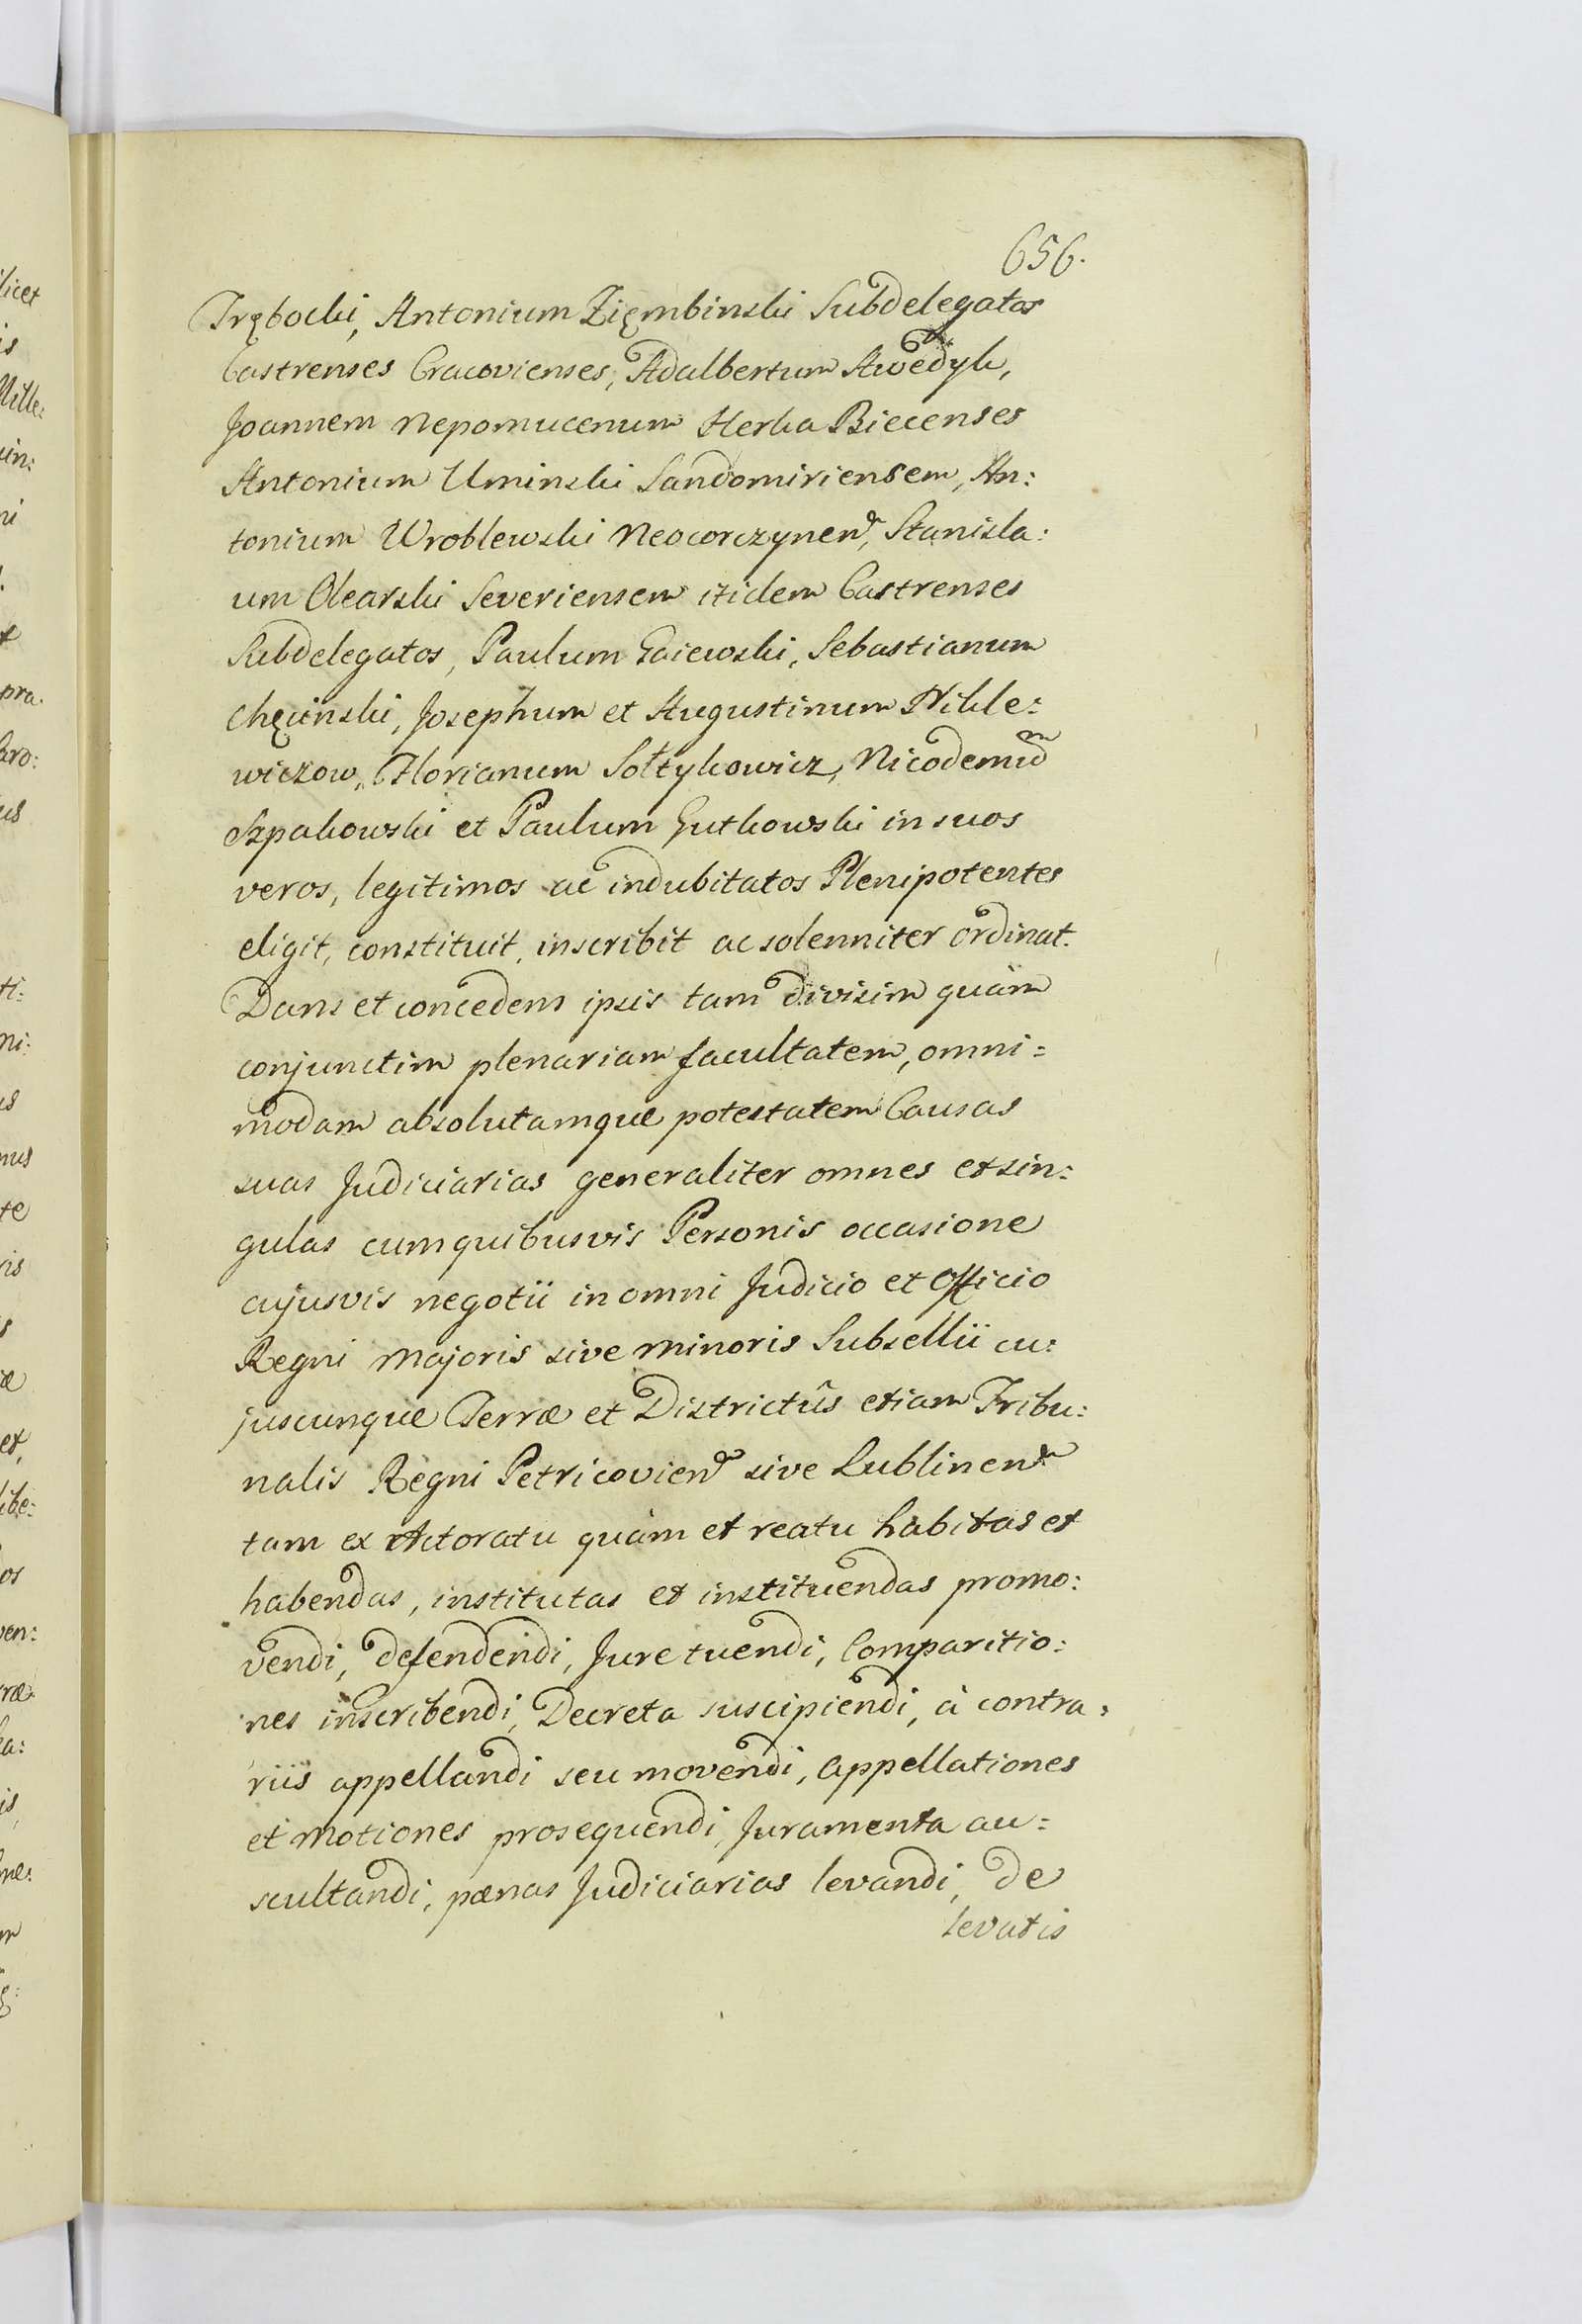 656.
Trębocki, Antonium Ziembinski Subdelegatos
Castrenses Cracovienses, Adalbertum Awedyk,
Joannem Nepomucenum Herka Biecenses
Antonium Uminski Sandomiriensem, An:
tonium Wroblewski Neocorczynen, Stanisla:
um Olearski Severiensem itidem Castrenses
Subdelegatos, Paulum Gaiewski, Sebastianum
Chęcinski, Josephum et Augustinum Nikle:
wiczow, Florianum Sołtykowicz, Nicodemum
Szpakowski et Paulum Gutkowski in suos
veros, legitimos ac indubitatos Plenipotentes
eligit, constituit, inscribit ac solenniter ordinat.
Dans et concedens ipsis tam divisim quàm
conjunctim plenariam facultatem, omni=
modam absolutamque potestatem Causas
suas Judiciarias generaliter omnes et sin:
gulas cum quibusvis Personis occasione
cujusvis negotii in omni Judicio et Officio
Regni Majoris sive Minoris Subsellii cu:
juscunque Terræ et Districtûs etiam Tribu:
nalis Regni Petricovien sive Lublinen
tam ex Actoratu quàm et reatu habitas et
habendas, institutas et instituendas promo:
vendi, defendendi, Jure tuendi, Comparitio:
nes inscribendi, Decreta suscipiendi, à contra:
riis appellandi seu movendi, Appellationes
et Motiones prosequendi, Juramenta au=
scultandi, pœnas Judiciarias levandi, de
levatis
licet
is
Mille:
uin:
ni
pra.
Gro:
us
ti:
ni:
us
mus
te
ris
æ
et,
libe:
os
ven:
ræ
la:
is,